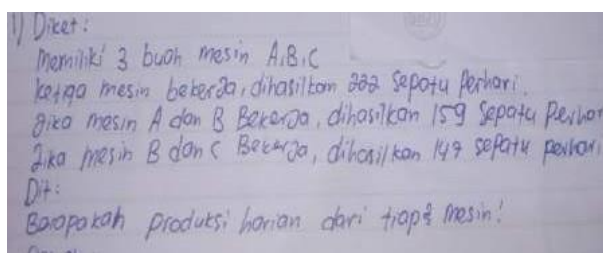 1) Diket:
Memiliki 3 buah mesin A,B,C
ketiga mesin bekerja, dihasilkan 222 sepatu perhari.
Jika mesin A dan B Bekerja, dihasilkan 159 Sepatu perhar
Jika mesin B dan C Bekerja, dihasilkan 147 sepatu perhari
Dit:
Barapakah produksi harian dari tiap² mesin!